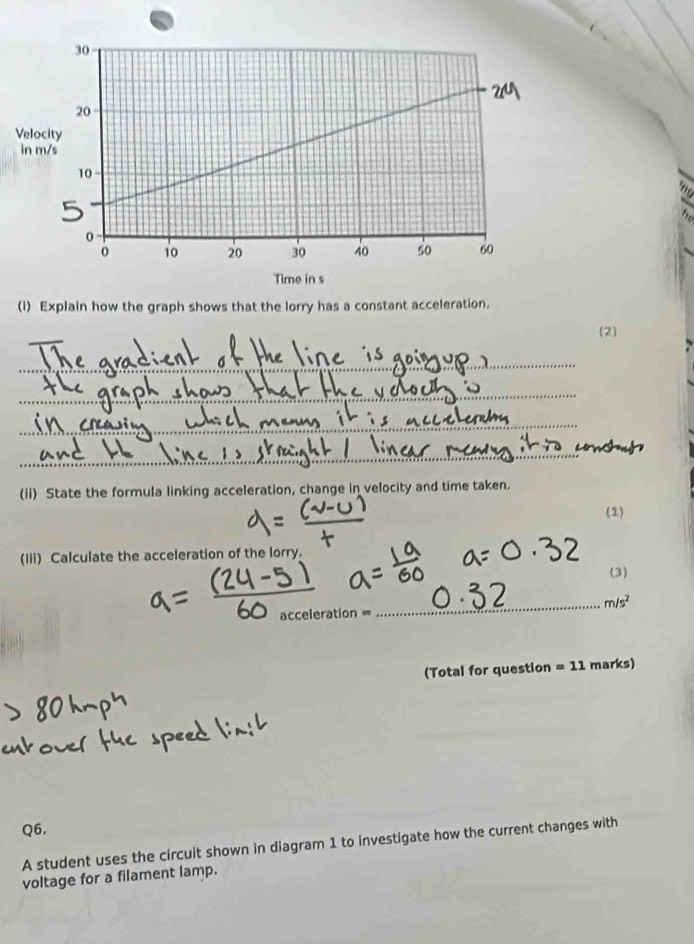 30
20
Velocity
in m/s
10
5
0
24
0 10 20 30 40 50 60
Time in s
(i) Explain how the graph shows that the lorry has a constant acceleration.
(2)
The gradient of the line is going up,
the graph shows that the velocity is
increasing which means it is accelerating
and the line is straight / linear meaning it is constant
(ii) State the formula linking acceleration, change in velocity and time taken.
a = (v-u)/t
(1)
(iii) Calculate the acceleration of the lorry.
a = (24-5)/60 a = 19/60 a = 0.32
(3)
acceleration = 0.32 m/s²
(Total for question = 11 marks)
> 80 kmph
over the speed limit
Q6.
A student uses the circuit shown in diagram 1 to investigate how the current changes with
voltage for a filament lamp.